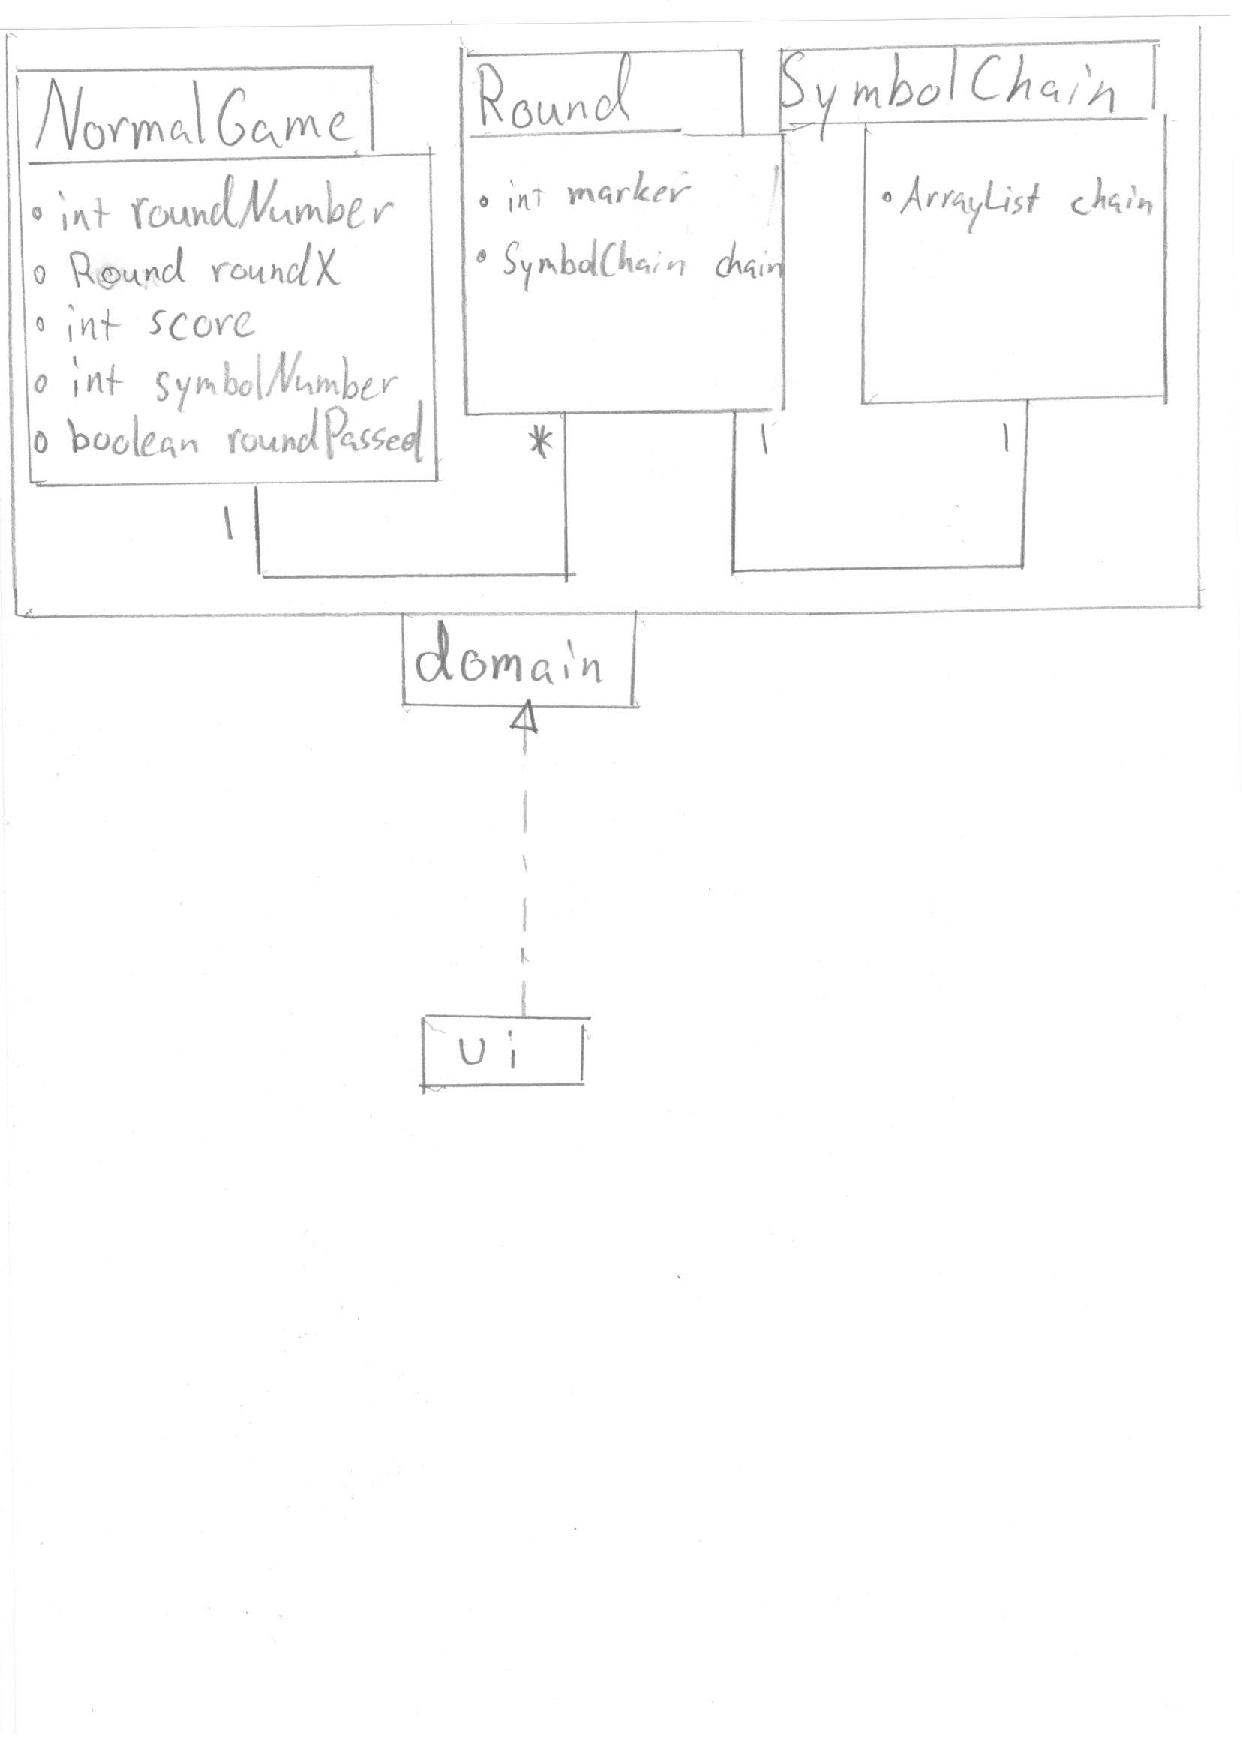 NormalGame
• int roundNumber
• Round roundX
• int score
• int symbolNumber
• boolean roundPassed
1
Round
• int marker
• SymbolChain chain
*
1
SymbolChain
• ArrayList chain
1
domain
ui